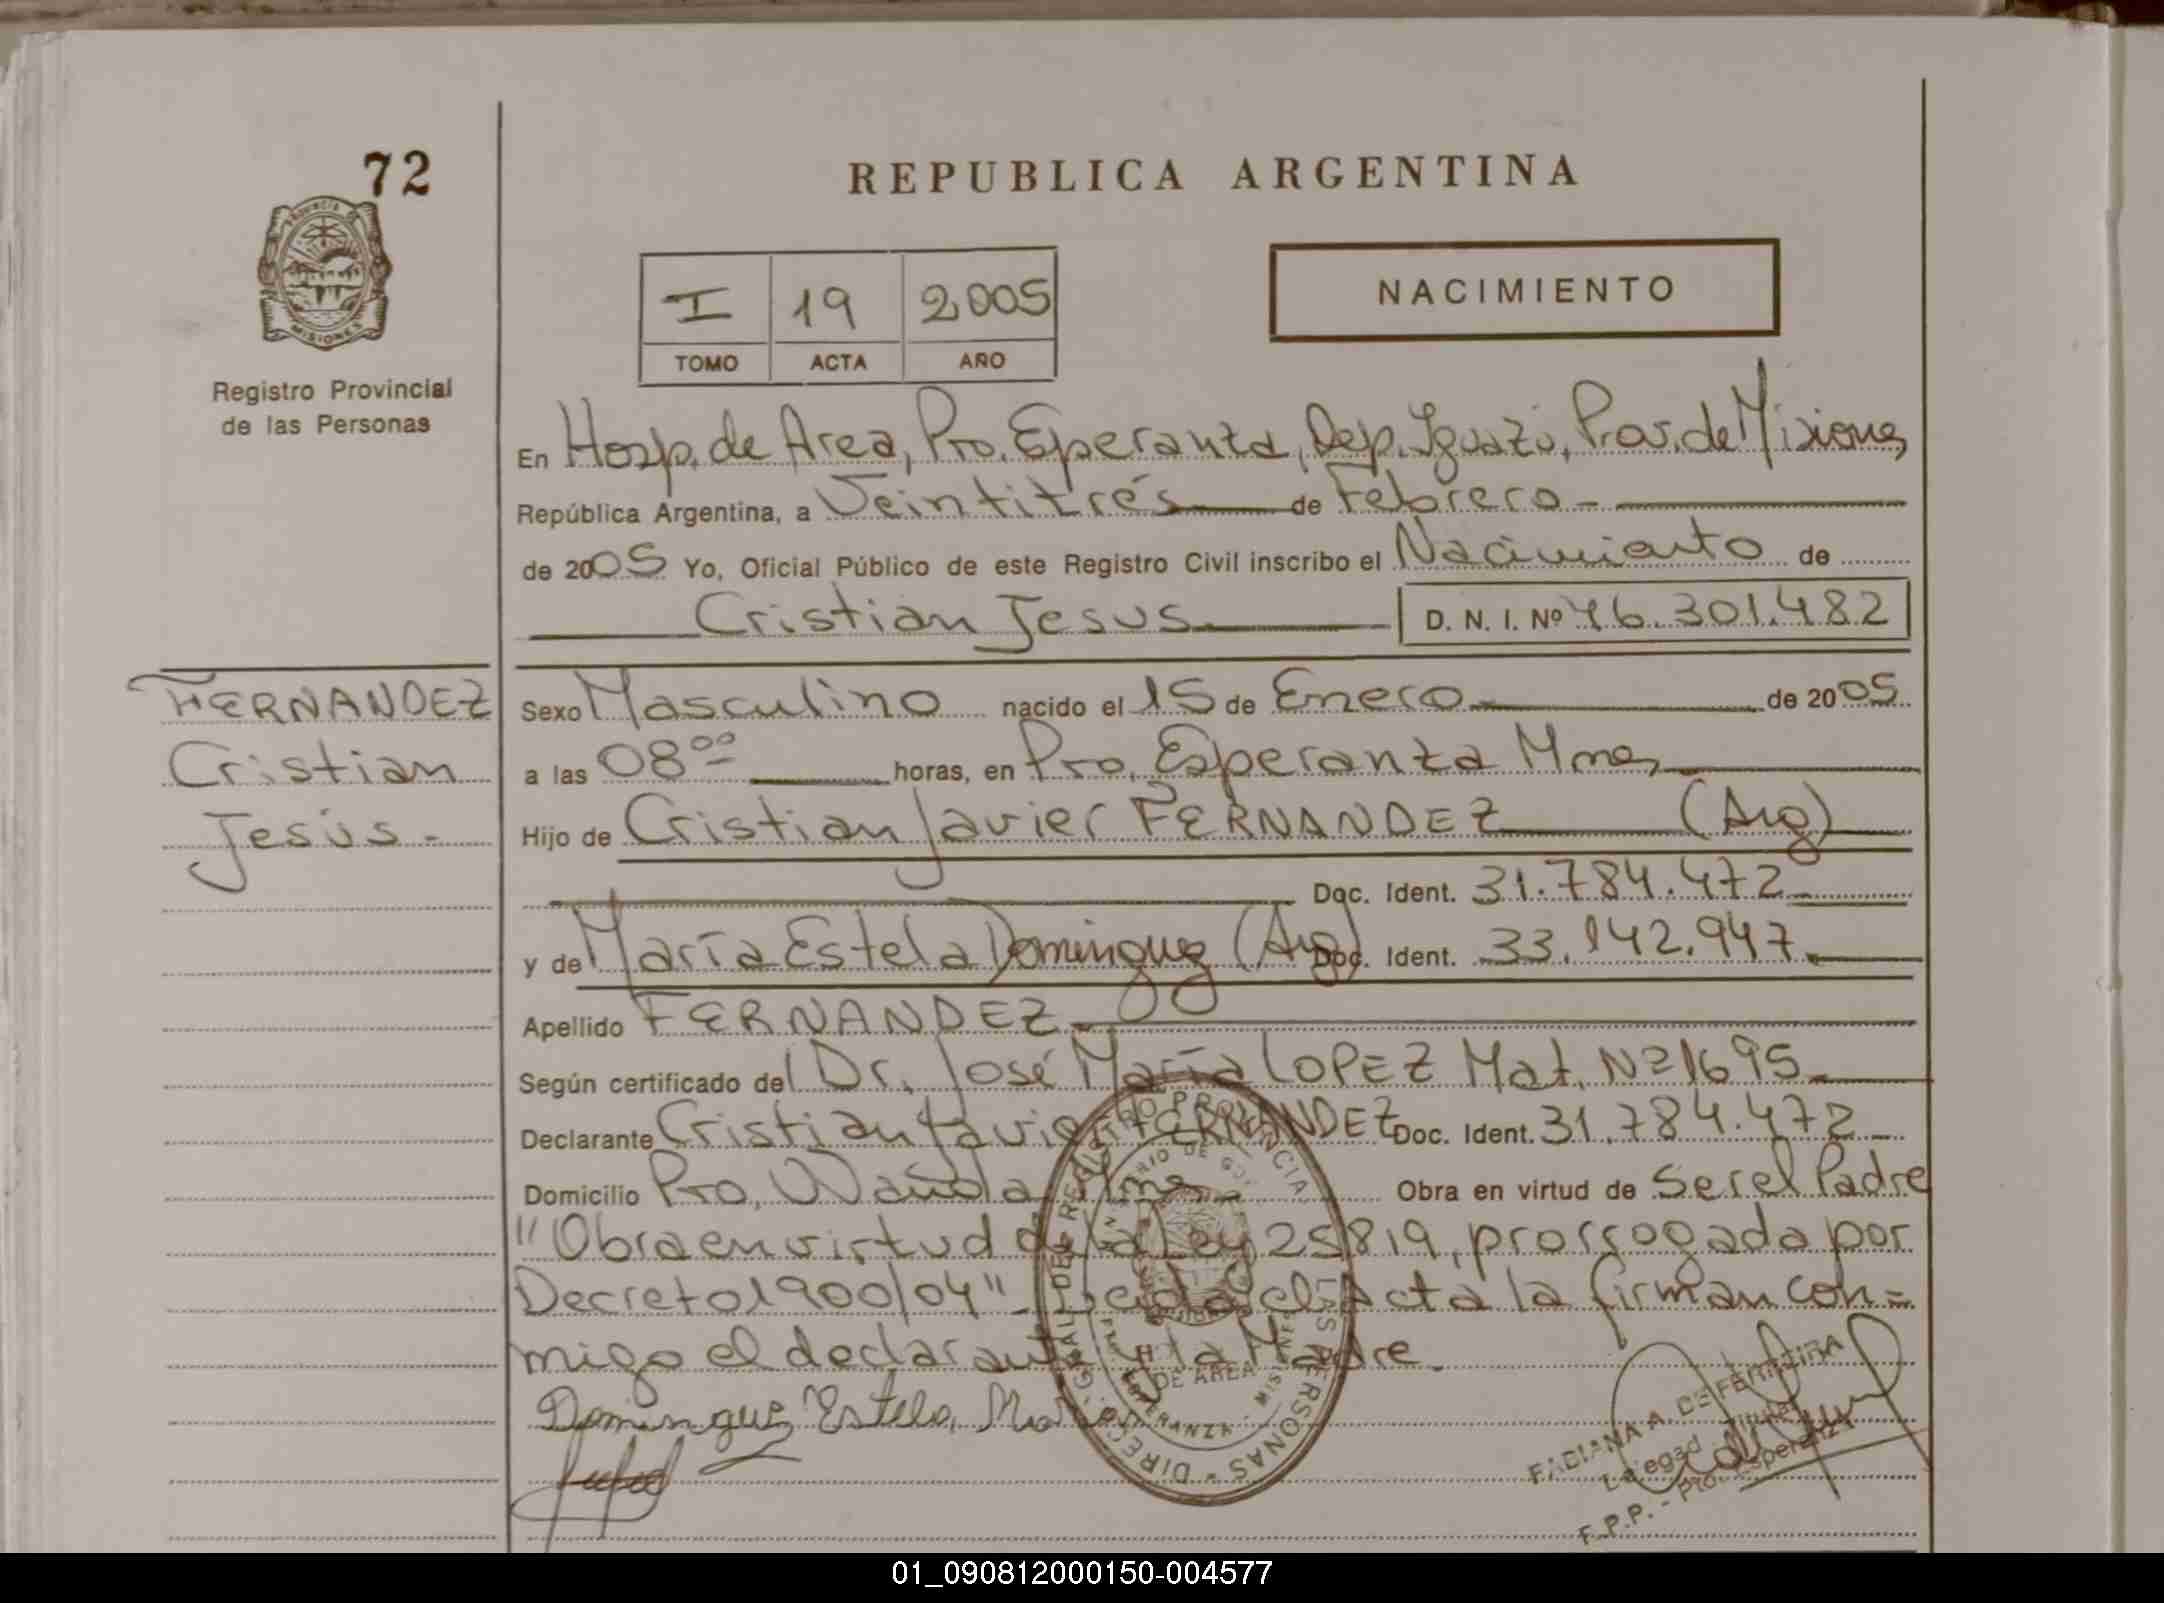 72
REPUBLICA ARGENTINA
PROVINCIA DE
MISIONES
Registro Provincial
de las Personas
I 19 2005
TOMO ACTA AÑO
NACIMIENTO
En Hosp. de Area, Pto. Esperanza, Dep. Iguazú, Prov. de Misiones
República Argentina, a Veintitrés de Febrero
de 2005 Yo, Oficial Público de este Registro Civil inscribo el Nacimiento de
Cristian Jesus D. N. I. Nº 46.301.482
FERNANDEZ
Cristian
Jesús.-
Sexo Masculino nacido el 15 de Enero de 2005
a las 08 00 horas, en Pto. Esperanza Mnes
Hijo de Cristian Javier FERNANDEZ (Arg)
Doc. Ident. 31.784.472
y de María Estela Dominguez (Arg) Doc. Ident. 33.142.947
Apellido FERNANDEZ
Según certificado del Dr. José María LOPEZ Mat. Nº 1695
Declarante Cristian Javier FERNANDEZ Doc. Ident. 31.784.472
Domicilio Pto. Wanda Mnes Obra en virtud de ser el Padre
"Obra en virtud de la Ley 25819, prorrogada por
Decreto 1900/04" Leida el Acta la firman con=
migo el declarante y la Madre.
Dominguez Estela Maria
DIRECC. GRAL. DEL REGISTRO PROVINCIAL DE LAS PERSONAS
MINISTERIO DE GOB.
DE AREA
ESPERANZA - MISIONES
FABIANA A. DE FERREIRA
Delegada Titular
R.P.P. - Pto. Esperanza
01_090812000150-004577